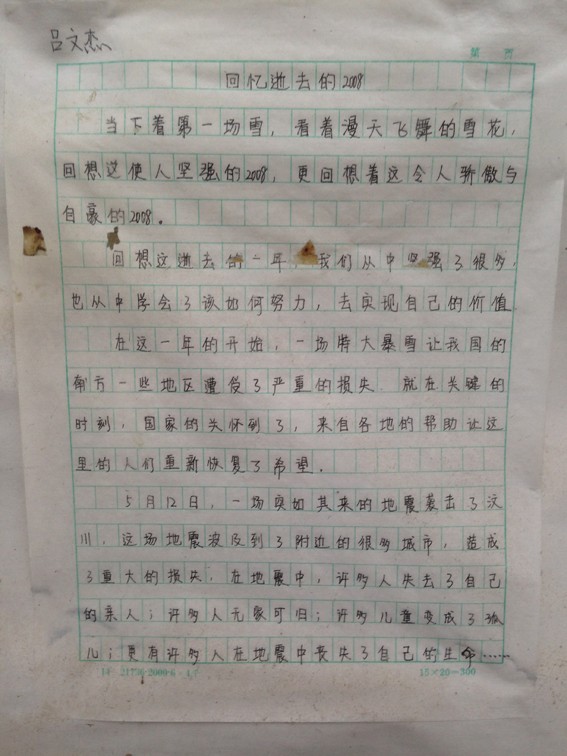 吕文杰
第 页
回忆逝去的2008
当下着第一场雪，看着漫天飞舞的雪花，
回想这使人坚强的2008，更回想着这令人骄傲与
自豪的2008。
回想这逝去的一年，我们从中坚强了很多，
也从中学会了该如何努力，去实现自己的价值
在这一年的开始，一场特大暴雪让我国的
南方一些地区遭受了严重的损失。就在关键的
时刻，国家的关怀到了，来自各地的帮助让这
里的人们重新恢复了希望。
5月12日，一场突如其来的地震袭击了汶
川，这场地震波及到了附近的很多城市，造成
了重大的损失，在地震中，许多人失去了自己
的亲人；许多人无家可归；许多儿童变成了孤
儿；更有许多人在地震中丧失了自己的生命……
15×20=300